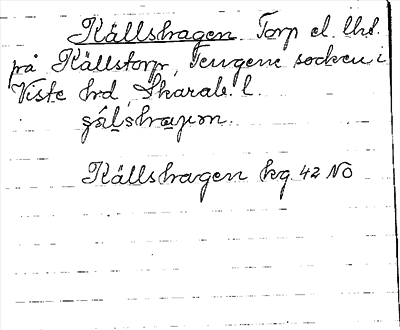 Källshagen. Torp el. lht.
på Källstorp, Tengene socken i
Viste hrd, Skarab. l.
Källshagen kg. 42 NO